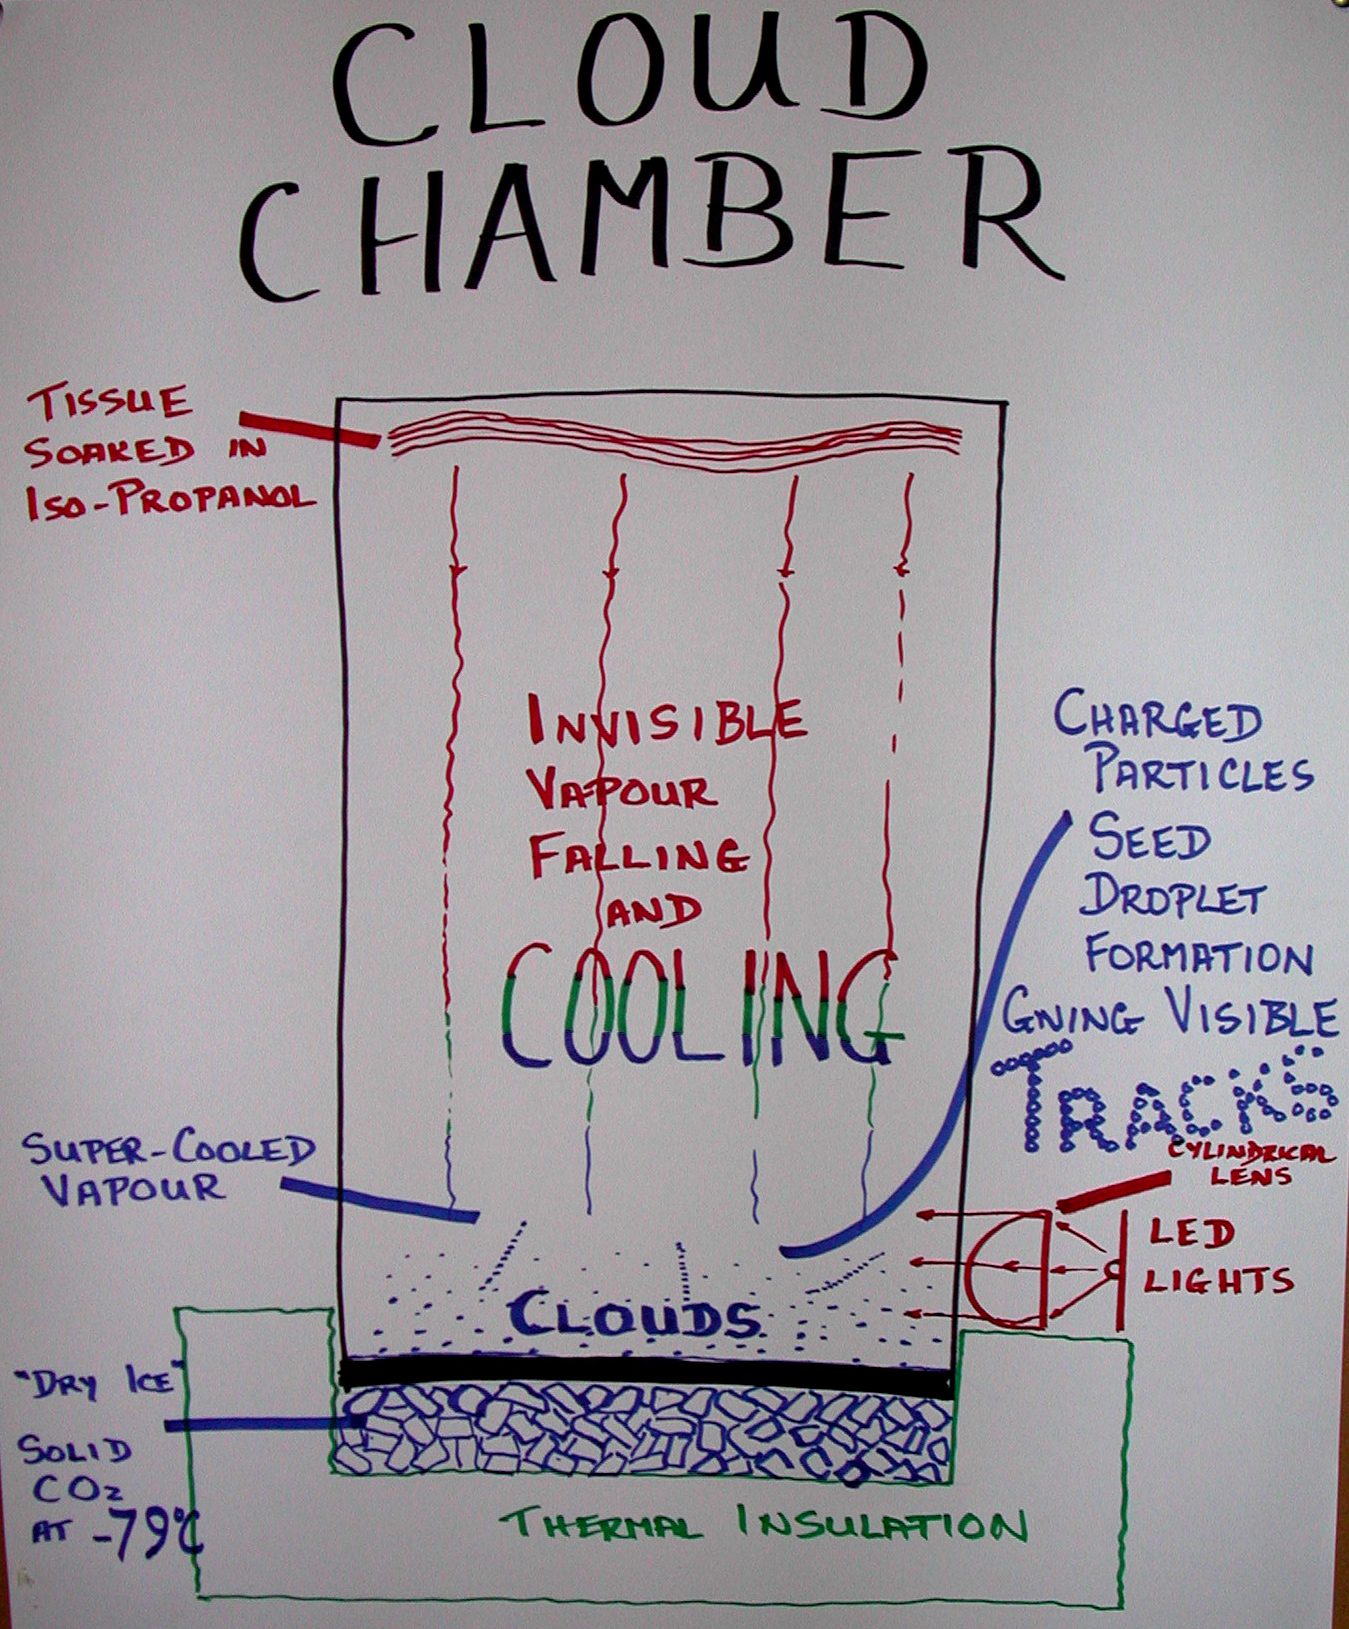 CLOUD
CHAMBER
TISSUE
SOAKED IN
ISO-PROPANOL
INVISIBLE
VAPOUR
FALLING
AND
COOLING
CHARGED
PARTICLES
SEED
DROPLET
FORMATION
GIVING VISIBLE
TRACKS
SUPER-COOLED
VAPOUR
CYLINDRICAL
LENS
LED
LIGHTS
CLOUDS
"DRY ICE"
SOLID
CO2
AT -79°C
THERMAL INSULATION